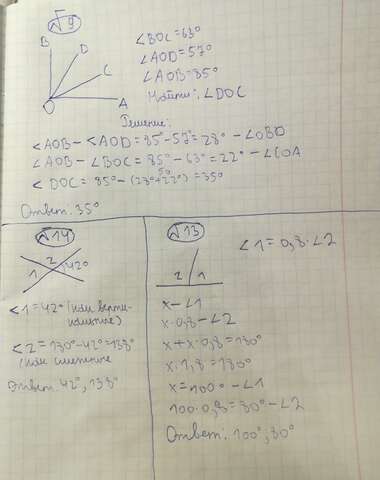 №9
B
D
C
O
A
∠BOC = 63°
∠AOD = 57°
∠AOB = 85°
Найти: ∠DOC
Решение:
∠AOB - ∠AOD = 85° - 57° = 28° - ∠OBD
∠AOB - ∠BOC = 85° - 63° = 22° - ∠COA
50
∠DOC = 85° - (28° + 22°) = 35°
Ответ: 35°
№14
1 2 42°
∠1 = 42° (как верти-
кальные)
∠2 = 180° - 42° = 138°
(как смежные
Ответ: 42°, 138°
№13
∠1 = 0,8 · ∠2
2 1
x - ∠1
x · 0,8 - ∠2
x + x · 0,8 = 180°
x · 1,8 = 180°
x = 100° - ∠1
100 · 0,8 = 80° - ∠2
Ответ: 100°, 80°